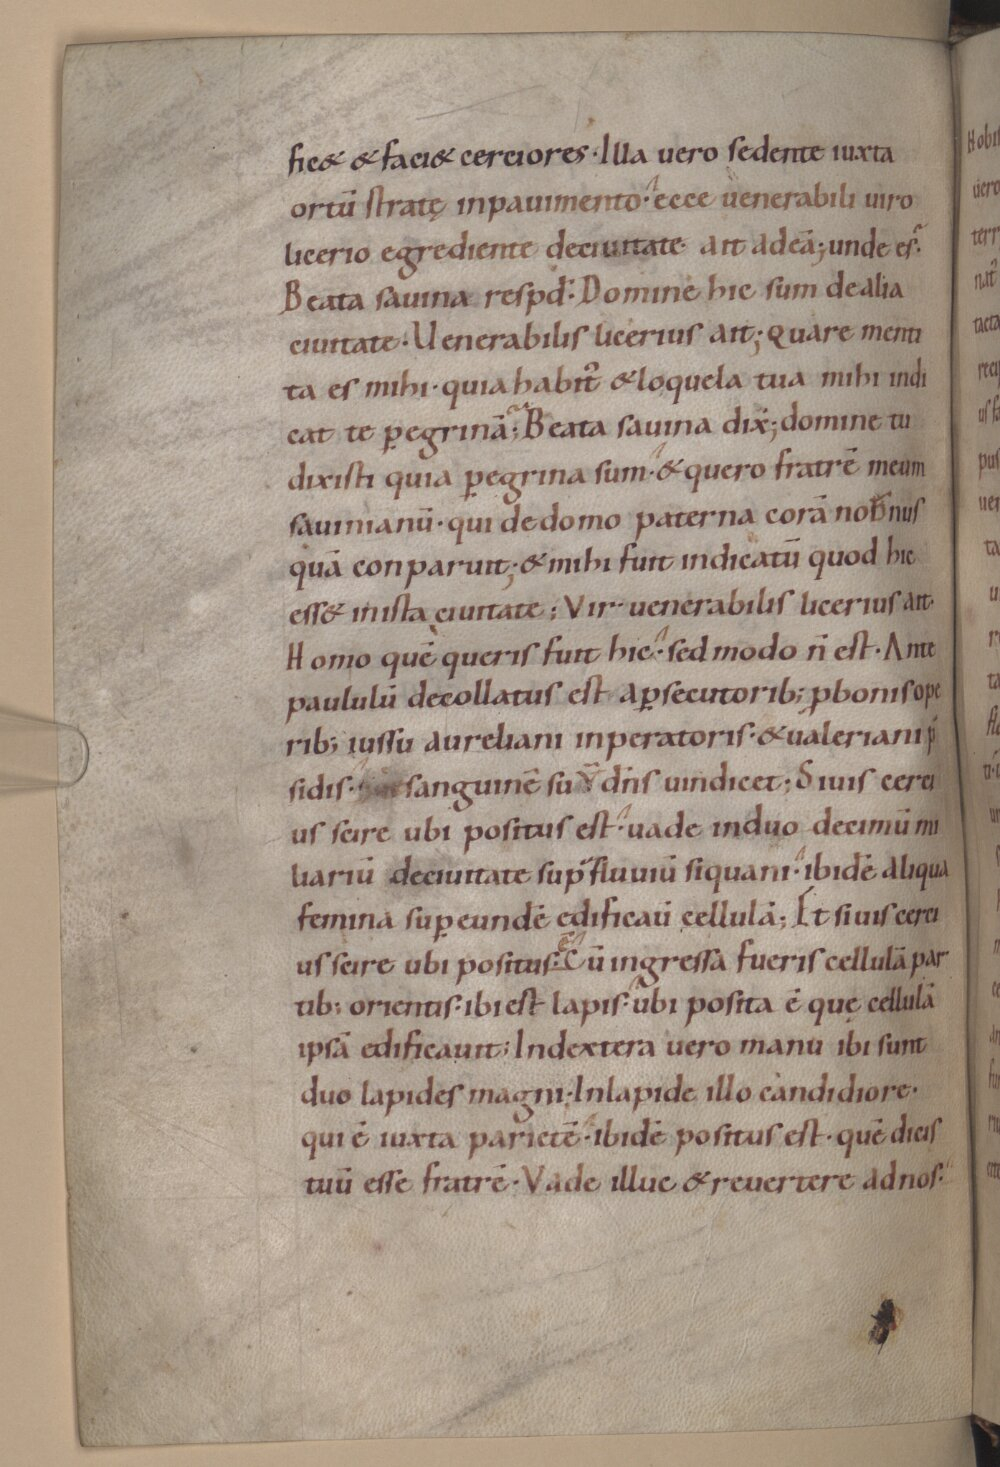 fic& & faci& cerciores· Illa uero sedente iuxta
ortū stratę inpauimento· ecce uenerabili uiro
licerio egrediente deciuitate· ait adeā; unde es·
Beata sauina respd̄: Domine hic sum dealia
ciuitate· Uenerabilis licerius ait; quare menti
ta es mihi· quia habit᷒ &loquela tua mihi indi
cat te ꝑegrinā; Beata sauina dix̄; domine tu
dixisti quia ꝑegrina sum· &quero fratrē meum
sauinianū· qui dedomo paterna corā nob̄ nus
quā conparuit; &mihi fuit indicatū quod hic
ess& inista ciuitate; Vir uenerabilis licerius ait·
Homo quē queris fuit hic· sed modo n̄ est· Ante
paululū decollatus est aꝑsecutorib; ꝓbonis ope
rib; iussu aureliani inperatoris· &ualeriani p̄
sidis· sanguinē suū dn̄s uindicet; Si uis cerci
us scire ubi positus est· uade induo decimū mi
liariū deciuitate sup̄ fluuiū siquani· ibidē aliqua
femina suꝑeundē edificaū cellulā; Et si uis cerci
us scire ubi positus· Cū ingressa fueris cellulā par
tib; orientis· ibi est lapis· ubi posita ē quę cellulā
ipsā edificauit; Indextera uero manu ibi sunt
duo lapides magni· Inlapide illo candidiore·
qui ē iuxta parietē· ibidē positus est· quē dicis
tuū esse fratrē· Vade illuc &reuertere adnos·